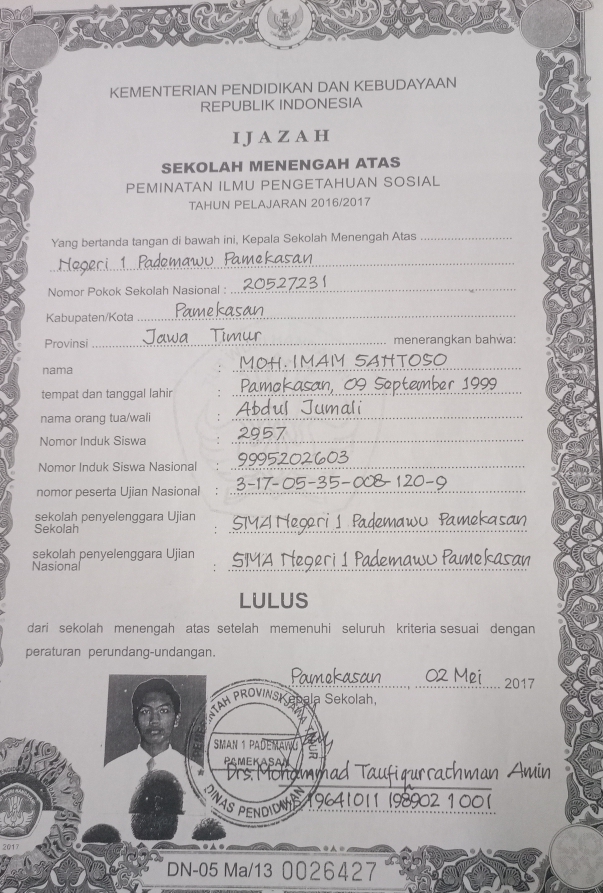 KEMENTERIAN PENDIDIKAN DAN KEBUDAYAAN
REPUBLIK INDONESIA
IJAZAH
SEKOLAH MENENGAH ATAS
PEMINATAN ILMU PENGETAHUAN SOSIAL
TAHUN PELAJARAN 2016/2017
Yang bertanda tangan di bawah ini, Kepala Sekolah Menengah Atas
Negeri 1 Pademawu Pamekasan
Nomor Pokok Sekolah Nasional : 20527231
Kabupaten/Kota Pamekasan
Provinsi Jawa Timur menerangkan bahwa:
nama : MOH. IMAM SANTOSO
tempat dan tanggal lahir : Pamekasan, 09 September 1999
nama orang tua/wali : Abdul Jumali
Nomor Induk Siswa : 2957
Nomor Induk Siswa Nasional : 9995202603
nomor peserta Ujian Nasional : 3-17-05-35-008-120-9
sekolah penyelenggara Ujian
Sekolah : SMA Negeri 1 Pademawu Pamekasan
sekolah penyelenggara Ujian
Nasional : SMA Negeri 1 Pademawu Pamekasan
LULUS
dari sekolah menengah atas setelah memenuhi seluruh kriteria sesuai dengan
peraturan perundang-undangan.
Pamekasan, 02 Mei 2017
Kepala Sekolah,
SMAN 1 PADEMAWU
PAMEKASAN
DINAS PENDIDIKAN
Drs. Mohammad Taufiqurrachman Amin
19641011 198902 1 001
2017
DN-05 Ma/13 0026427